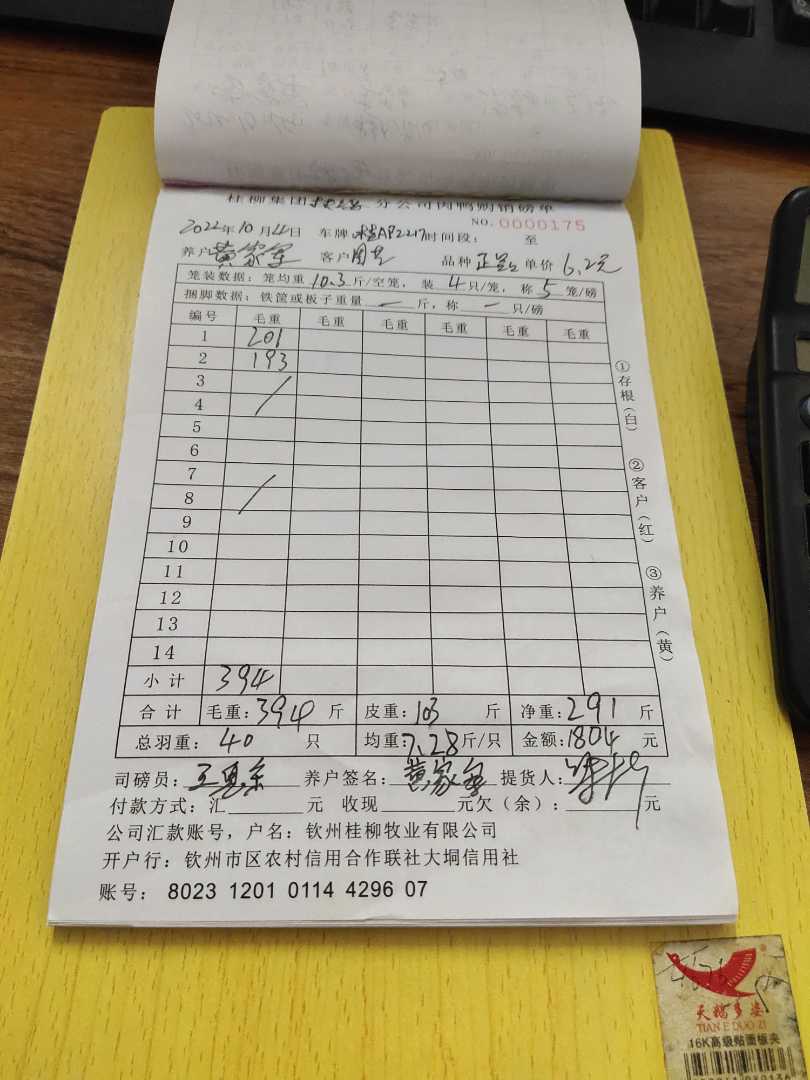 桂柳集团 分公司肉鸭购销磅单
NO. 0000175
2022年10月4日 车牌 AP2217 时间段： 至
养户 黄家 客户 品种 正 单价 6.2元
笼装数据：笼均重 10.3 斤/空笼，装 4 只/笼，称 5 笼/磅
捆脚数据：铁筐或板子重量 — 斤，称 — 只/磅
编号 毛重 毛重 毛重 毛重 毛重 毛重
1 201
2 193
3
4
5
6
7
8
9
10
11
12
13
14
小计 394
合计 毛重：394 斤 皮重：103 斤 净重：291 斤
总羽重：40 只 均重：7.28斤/只 金额：1804 元
司磅员： 养户签名：黄家 提货人：
付款方式：汇 元 收现 元欠（余）： 元
公司汇款账号，户名：钦州桂柳牧业有限公司
开户行：钦州市区农村信用合作联社大垌信用社
账号： 8023 1201 0114 4296 07
①存根（白）
②客户（红）
③养户（黄）
天籽多姿
TIAN E DUO ZI
16K高级贴面板夹